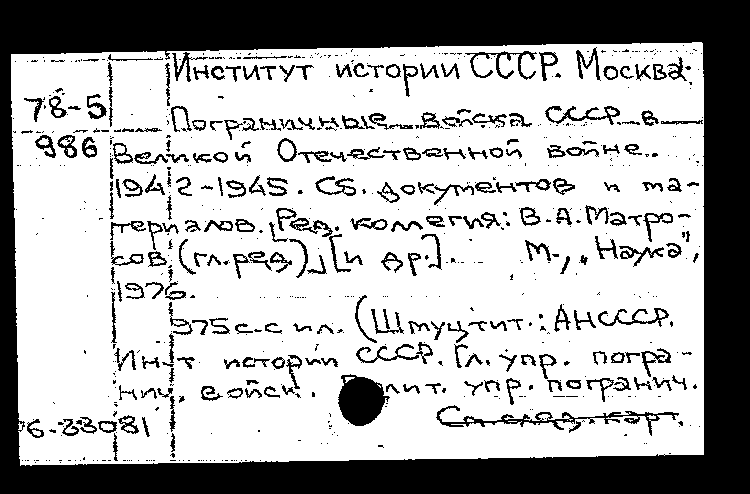 Институт истории СССР. Москва.
78-5
Пограничные войска СССР в
986
Великой Отечественной войне.
1942-1945. Сб. документов и ма-
териалов. Ред. коллегия: В.А.Матро-
сов (гл.ред.) [и др.]. М., „Наука",
1976.
975 с. с ил. (Шмуцтит.: АН СССР.
Ин-т истории СССР. Гл. упр. погра-
нич. войск. Полит. упр. погранич.
6-33081
См. след. карт.